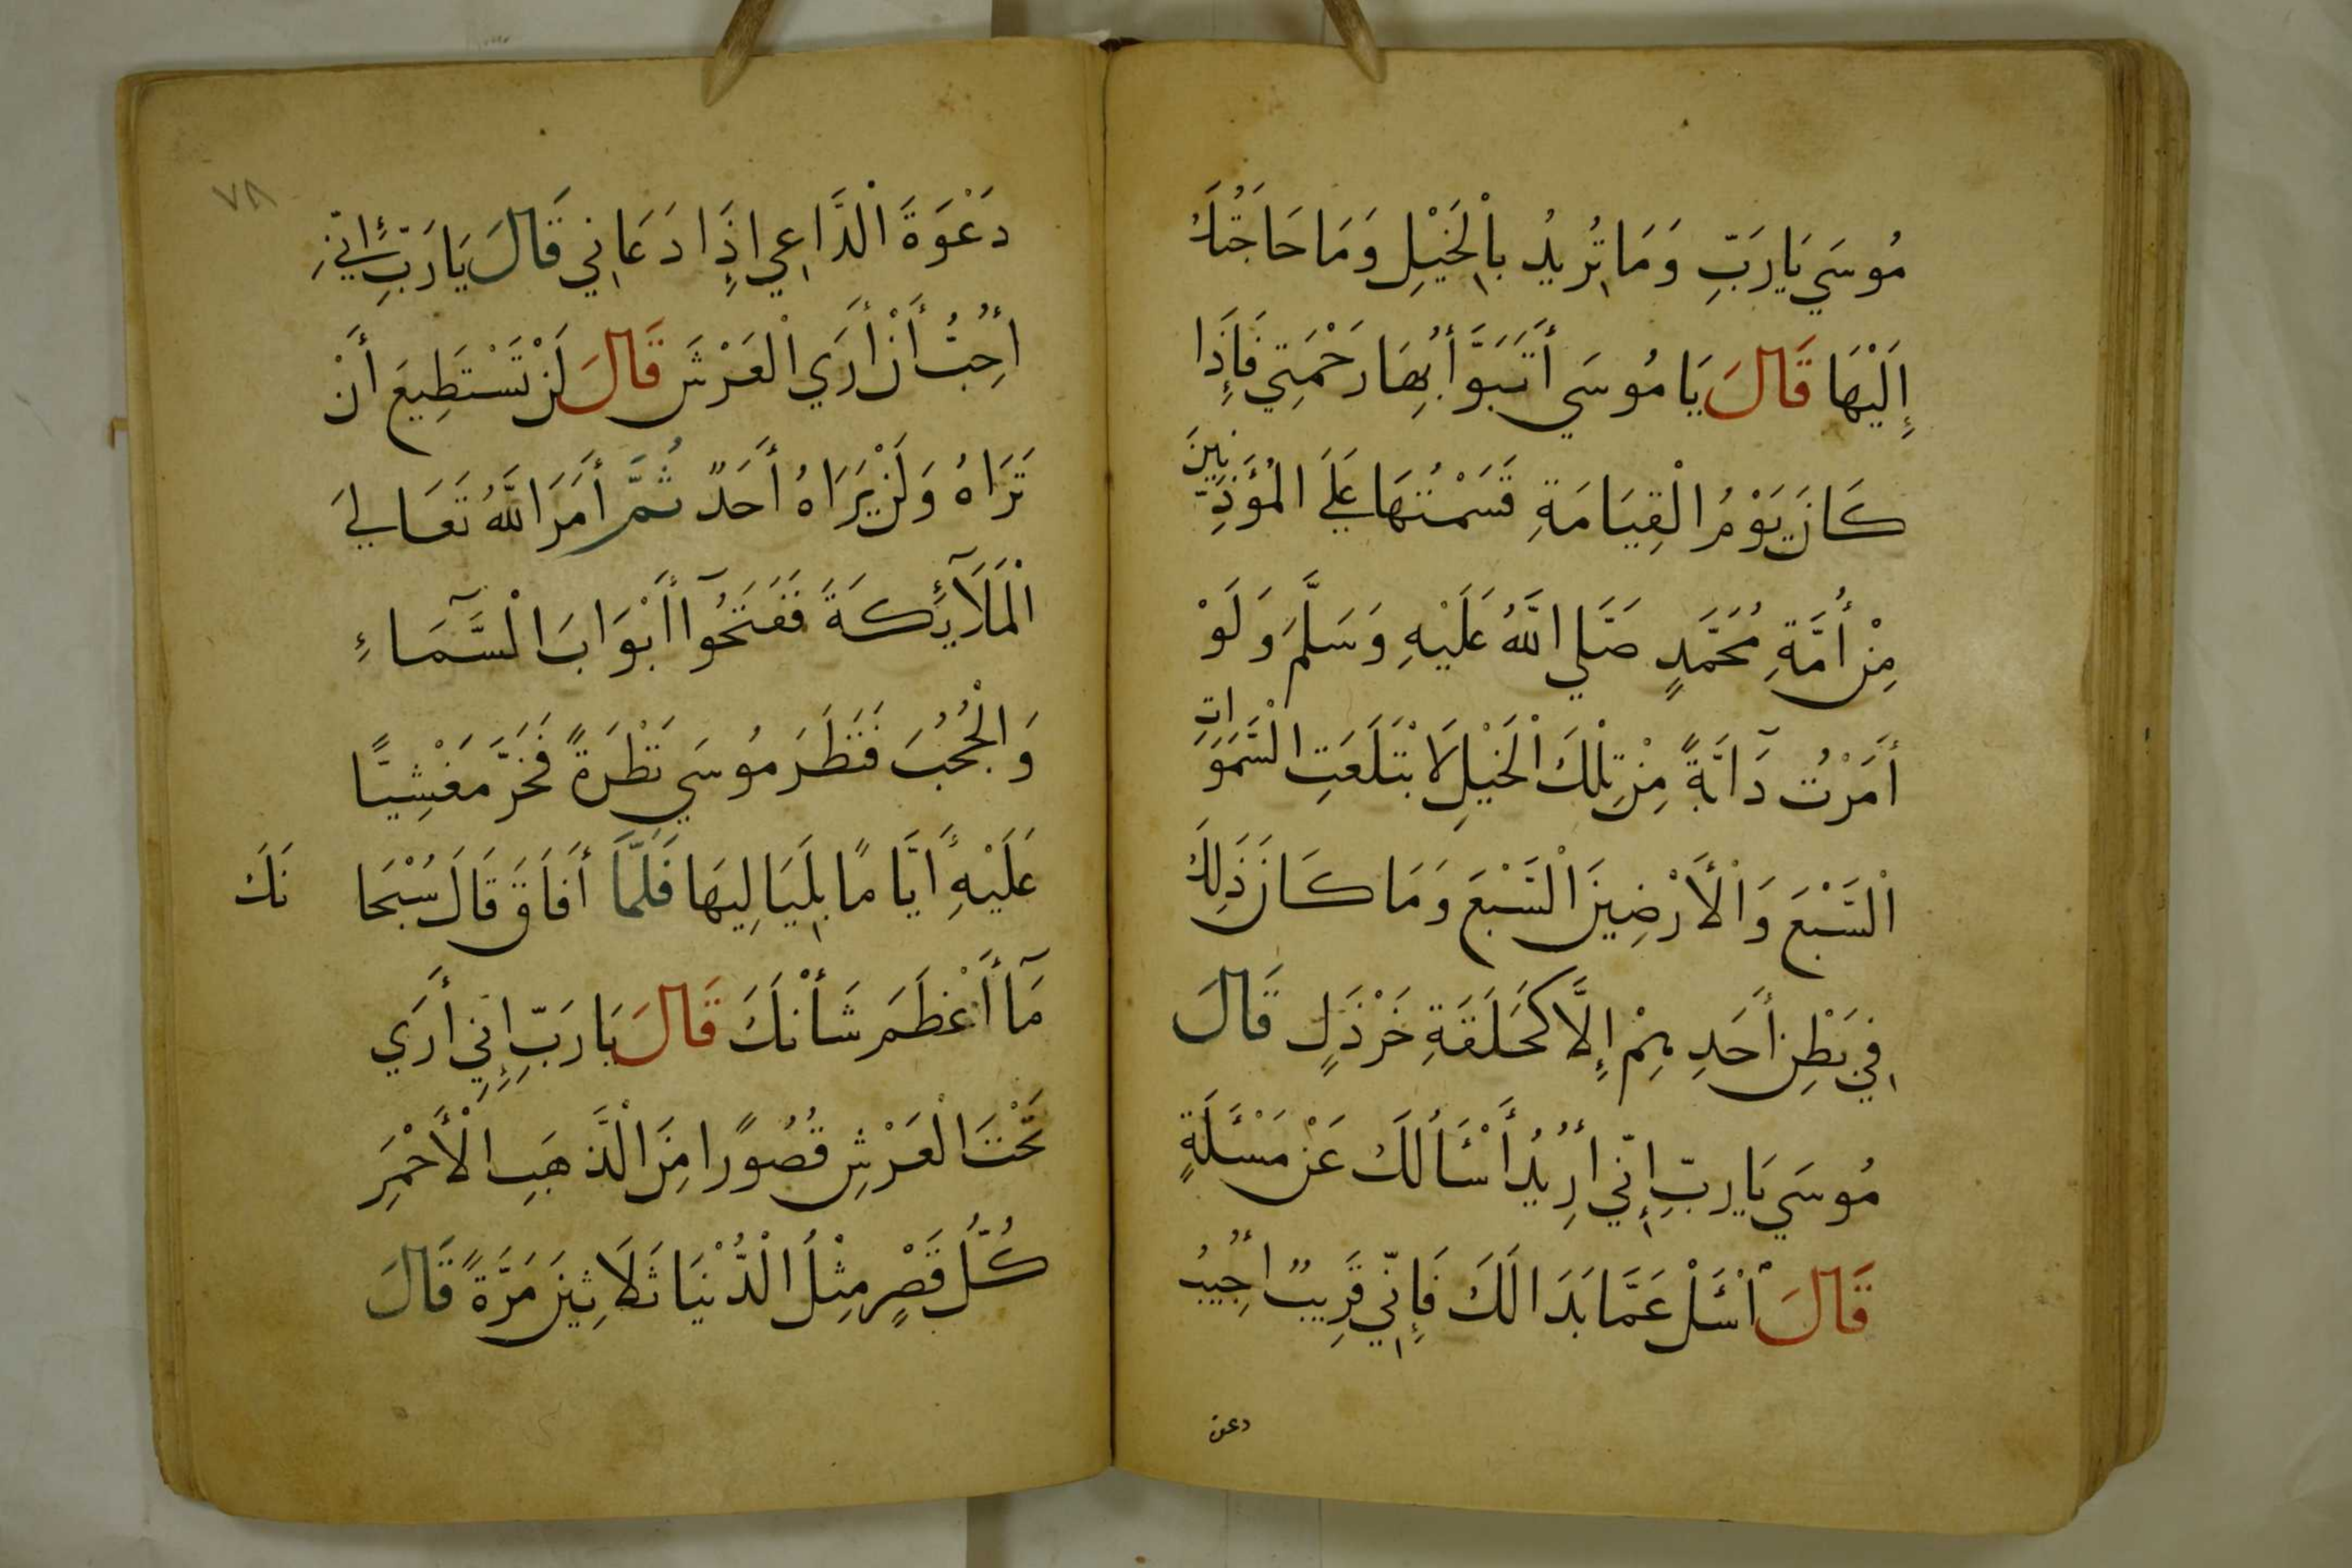 مُوسَي يَا رَبِّ وَمَا تُرِيدُ بِالْخَيْلِ وَمَا حَاجَتُكَ
إِلَيْهَا قَالَ يَا مُوسَي أَتَبَوَّأُ بِهَا رَحْمَتِي فَإِذَا
كَانَ يَوْمُ الْقِيَامَةِ قَسَمْتُهَا عَلَي الْمُؤَذِّنِينَ
مِنْ أُمَّةِ مُحَمَّدٍ صَلَّي اللَّهُ عَلَيْهِ وَسَلَّمَ وَلَوْ
أَمَرْتُ دَآبَّةً مِنْ تِلْكَ الْخَيْلِ لَابْتَلَعَتِ السَّمَوَاتِ
السَّبْعَ وَالْأَرْضِينَ السَّبْعَ وَمَا كَانَ ذَلِكَ
فِي بَطْنِ أَحَدِهِمْ إِلَّا كَحَلَقَةِ خَرْذَلٍ قَالَ
مُوسَي يَا رَبِّ إِنِّي أُرِيدُ أَسْئَالُكَ عَنْ مَسْئَلَةٍ
قَالَ اسْئَلْ عَمَّا بَدَا لَكَ فَإِنِّي قَرِيبٌ أُجِيبُ
دعوة
٧٨
دَعْوَةَ الْدَّاعِي إِذَا دَعَانِي قَالَ يَا رَبِّ إِنِّي
أُحِبُّ أَنْ أَرَي الْعَرْشَ قَالَ لَنْ تَسْتَطِيعَ أَنْ
تَرَاهُ وَلَنْ يَرَاهُ أَحَدٌ ثُمَّ أَمَرَ اللَّهُ تَعَالَي
الْمَلَآئِكَةَ فَفَتَحُوآ أَبْوَابَ الْسَّمَآءِ
وَالْحُجُبَ فَنَظَرَ مُوسَي نَظْرَةً فَخَرَّ مَغْشِيًّا
عَلَيْهِ أَيَّامًا بِلَيَالِيهَا فَلَمَّا أَفَاقَ قَالَ سُبْحَانَكَ
مَآ أَعْظَمَ شَأْنَكَ قَالَ يَا رَبِّ إِنِّي أَرَي
تَحْتَ الْعَرْشِ قُصُورًا مِنَ الْذَّهَبِ الْأَحْمَرِ
كُلُّ قَصْرٍ مِثْلُ الْدُّنْيَا ثَلَاثِينَ مَرَّةً قَالَ